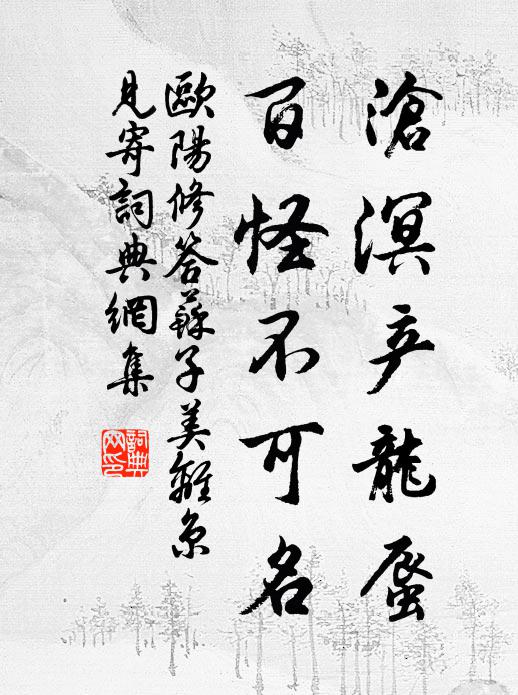 滄溟产龍蜃
百怪不可名
歐陽修答蘇子美離京
見寄詞典網集
詞典
网印